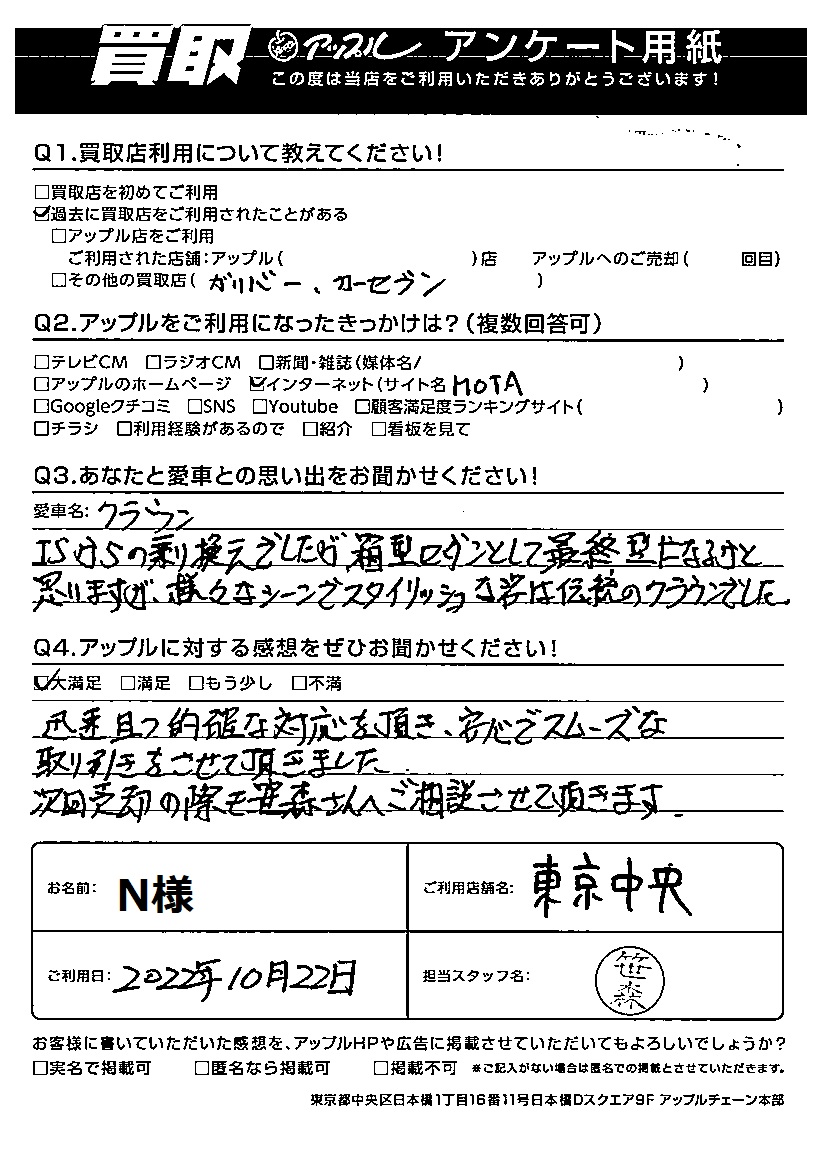 買取 アップル アンケート用紙
この度は当店をご利用いただきありがとうございます！
Q1.買取店利用について教えてください！
□買取店を初めてご利用
☑過去に買取店をご利用されたことがある
□アップル店をご利用
ご利用された店舗：アップル（ ）店 アップルへのご売却（ 回目）
□その他の買取店（ ガリバー、カーセブン ）
Q2.アップルをご利用になったきっかけは？（複数回答可）
□テレビCM □ラジオCM □新聞・雑誌（媒体名/ ）
□アップルのホームページ ☑インターネット（サイト名 MOTA ）
□Googleクチコミ □SNS □Youtube □顧客満足度ランキングサイト（ ）
□チラシ □利用経験があるので □紹介 □看板を見て
Q3.あなたと愛車との思い出をお聞かせください！
愛車名： クラウン
ISからの乗り換えでしたが箱型セダンとして最終型になるかと
思いますが、様々なシーンでスタイリッシュな姿は伝統のクラウンでした。
Q4.アップルに対する感想をぜひお聞かせください！
☑大満足 □満足 □もう少し □不満
迅速且つ的確な対応を頂き、安心でスムーズな
取り引きをさせて頂きました。
次回売却の際も笹森さんへご相談させて頂きます。
お名前： N様 ご利用店舗名： 東京中央
ご利用日： 2022年10月22日 担当スタッフ名： 笹森
お客様に書いていただいた感想を、アップルHPや広告に掲載させていただいてもよろしいでしょうか？
□実名で掲載可 □匿名なら掲載可 □掲載不可 ※ご記入がない場合は匿名での掲載とさせていただきます。
東京都中央区日本橋1丁目16番11号日本橋Dスクエア9F アップルチェーン本部